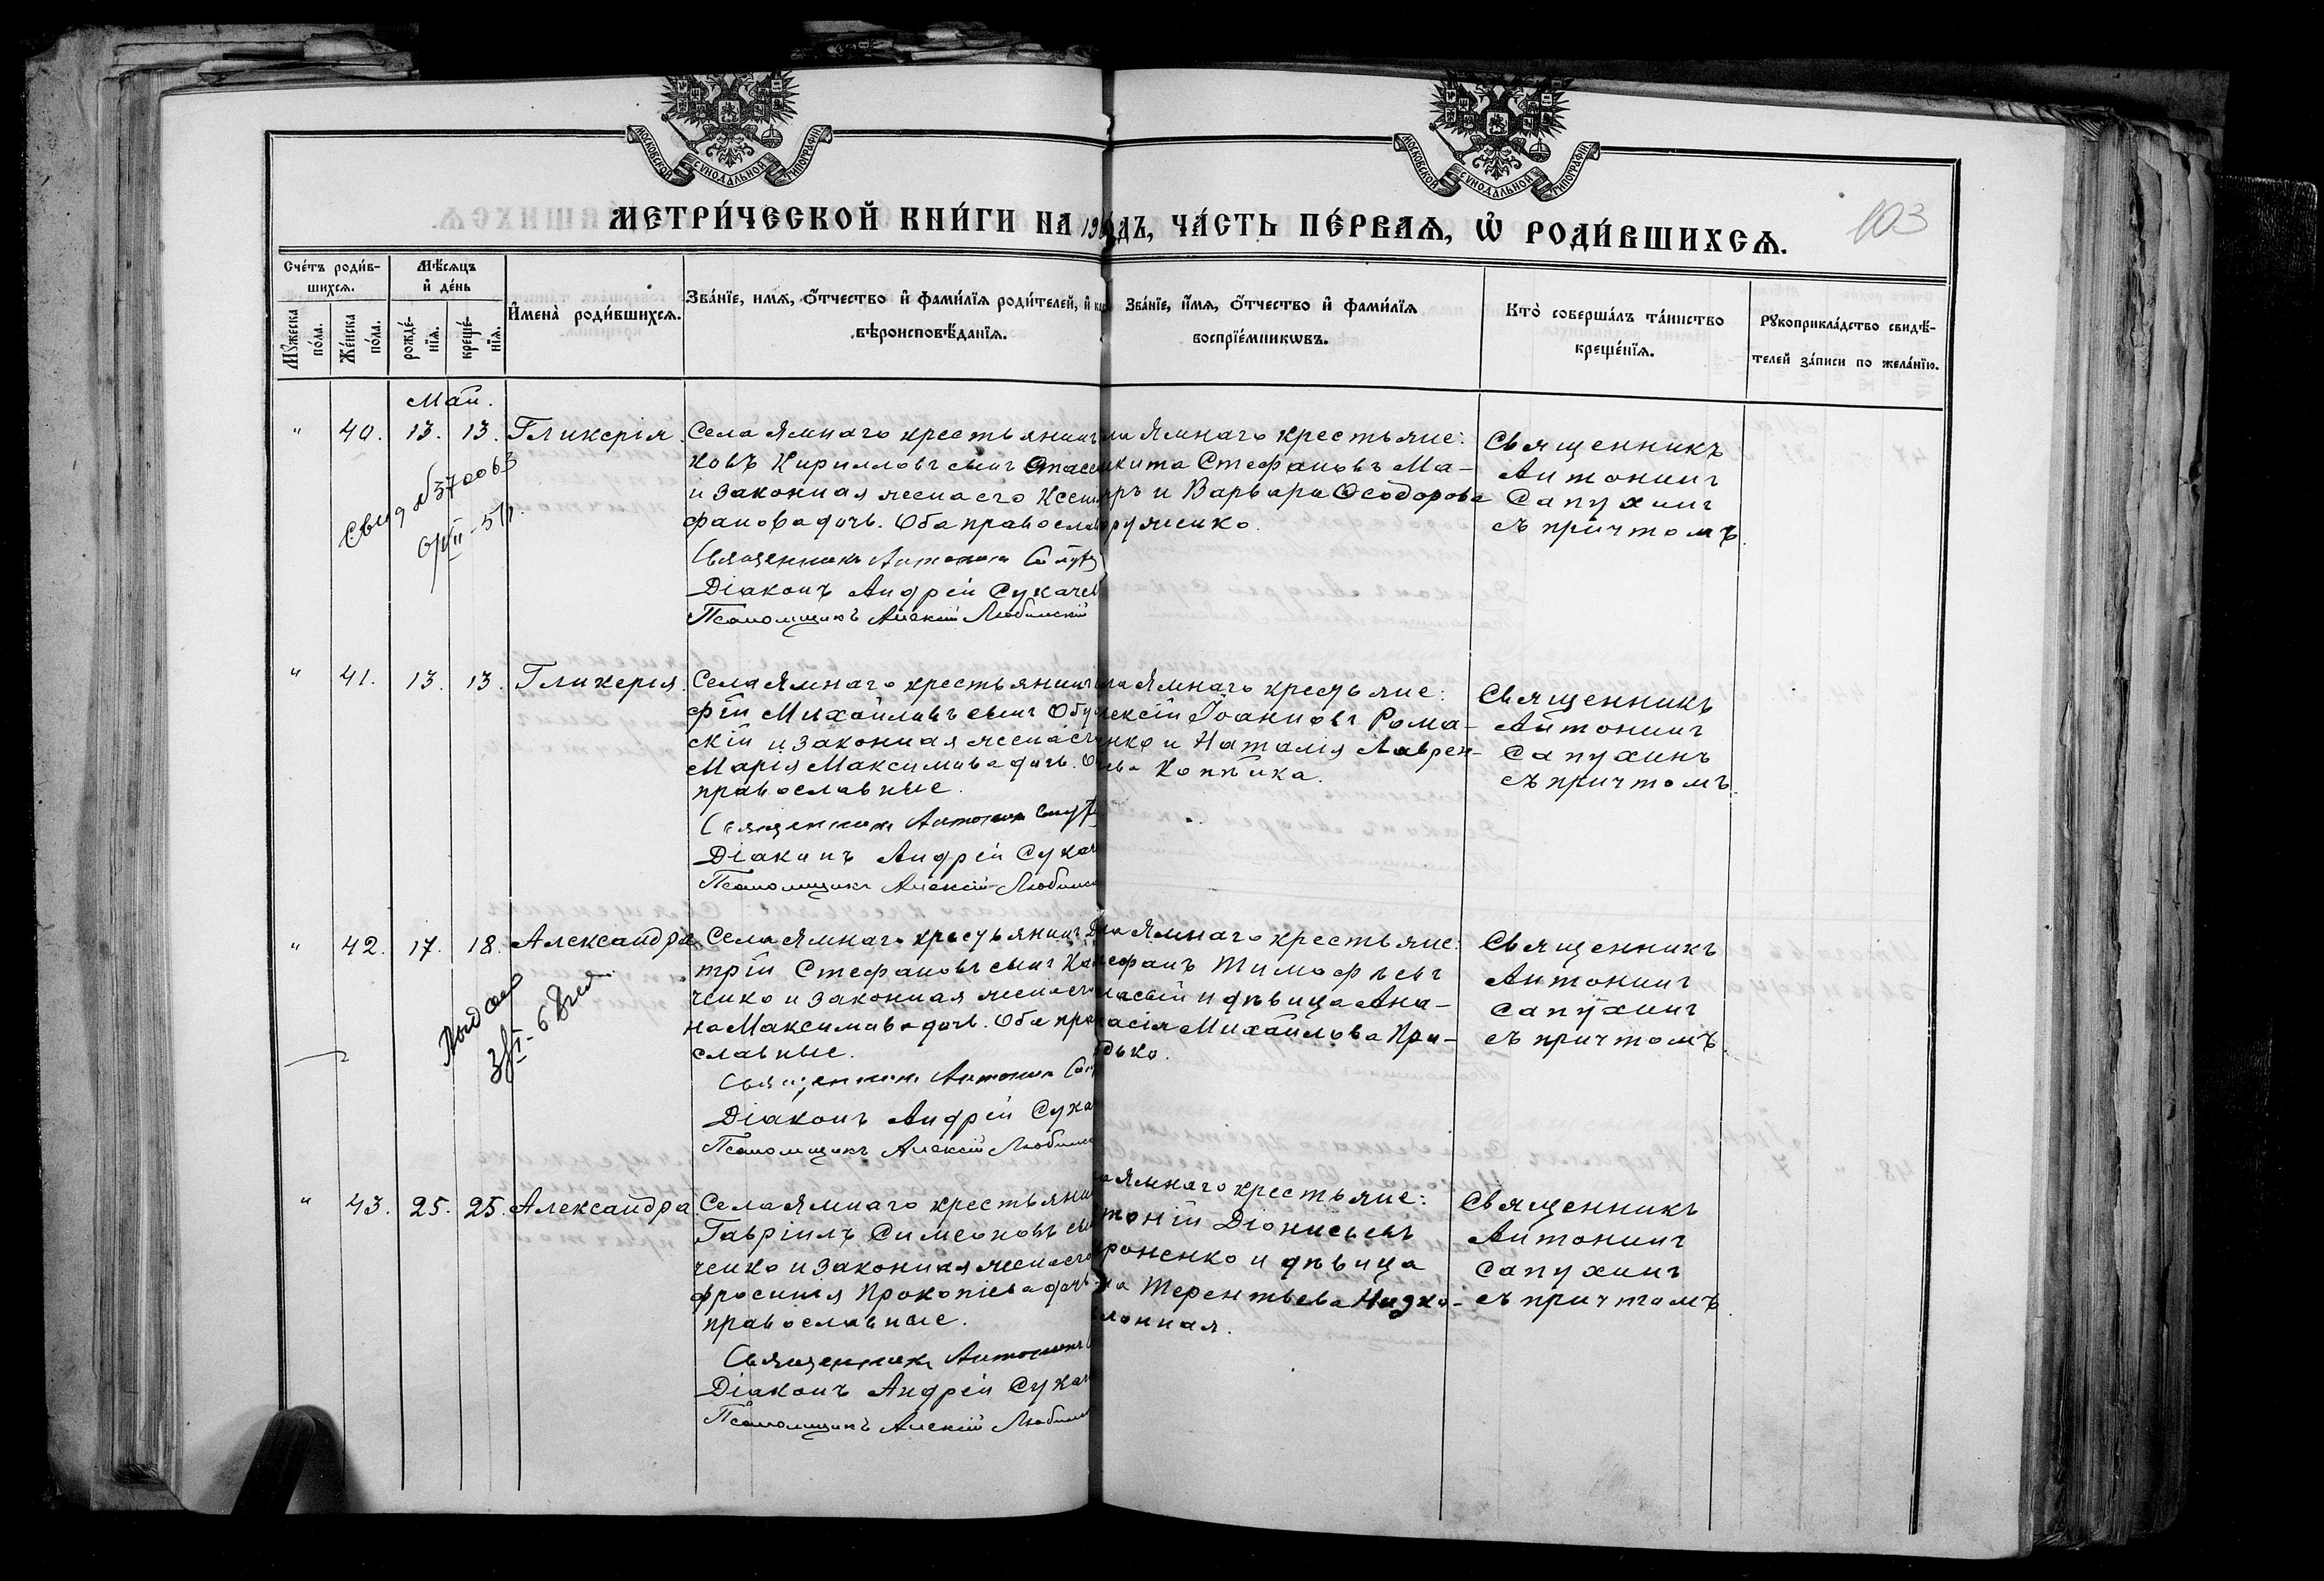 МОСКОВСКОЙ СѴНОДАЛЬНОЙ ТИПОГРАФІИ
МОСКОВСКОЙ СѴНОДАЛЬНОЙ ТИПОГРАФІИ
МЕТРИ́ЧЕСКОЙ КНИ́ГИ НА 19 ДЪ, ЧА́СТЬ ПЕ́РВАѦ, Ѡ РОДИ́ВШИХСѦ.
103
Сче́тъ роди́в-
шихсѧ.
Мꙋ́жеска по́ла.
Же́нска по́ла.
Мѣ́сѧцъ
и де́нь
рожде́-
нїѧ.
креще́-
нїѧ.
Имена̀ роди́вшихсѧ.
Зва́нїе, имѧ, ѻ́тчество и фами́лїѧ роди́телей, и
вѣроисповѣ́данїѧ.
Зва́нїе, и́мѧ, ѻ́тчество и фами́лїѧ
воспрїе́мникѡвъ.
Кто̀ соверша́лъ та́инство
креще́нїѧ.
Рꙋкоприкла́дство свидѣ́-
телей за́писи по жела́нїю.
Май.
" 40. 13. 13. Гликерія.
Села Ямнаго крестьянинъ
ковъ Кирилловъ сынъ
и законная жена его
фанова дочь. Оба
Священникъ Антонинъ
Діаконъ Андрей Сукачев
Псаломщикъ Алексій Любинскій
Ямнаго крестьяне:
икита Стефановъ Ма-
ръ и Варвара Ѳеодорова
руженко.
Священникъ
Антонинъ
Сапухинъ
съ причтомъ.
Свид №370063
" 41. 13. 13. Гликерія.
Села Ямнаго крестьянинъ
фій Михайловъ сынъ Обу
скій и законная жена его
Марія Максимова дочь. О
православные.
Священникъ Антонинъ
Діаконъ Андрей Сукач
Псаломщикъ Алексій Любинск
ла Ямнаго крестьяне:
лексій Іоанновъ Рома-
енко и Наталія Лаврен-
ева Коптика.
Священникъ
Антонинъ
Сапухинъ
съ причтомъ.
" 42. 17. 18. Александра.
Села Ямнаго крестьянинъ Ди
трій Стефановъ сынъ
ченко и законная жена его
на Максимова дочь. Оба пра
славные.
Священникъ Антонинъ
Діаконъ Андрей Сука
Псаломщикъ Алексій Любинск
ла Ямнаго крестьяне:
ефанъ Тимофѣевъ
и дѣвица Ана-
тасія Михайлова При-
дько.
Священникъ
Антонинъ
Сапухинъ
съ причтомъ.
" 43. 25. 25. Александра.
Села Ямнаго крестьянин
Гавріилъ Симеоновъ сы
ченко и законная жена его
фросинія Прокопіева дочь.
православные.
Священникъ Антонинъ
Діаконъ Андрей Сукач
Псаломщикъ Алексій Любинс
ла Ямнаго крестьяне:
тоній Діонисьевъ
роненко и дѣвица
на Терентьева Низко-
клонная.
Священникъ
Антонинъ
Сапухинъ
съ причтомъ.